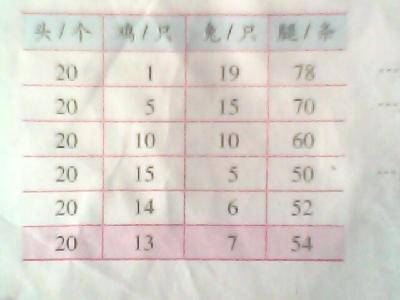 头/个 鸡/只 兔/只 腿/条
20 1 19 78
20 5 15 70
20 10 10 60
20 15 5 50
20 14 6 52
20 13 7 54